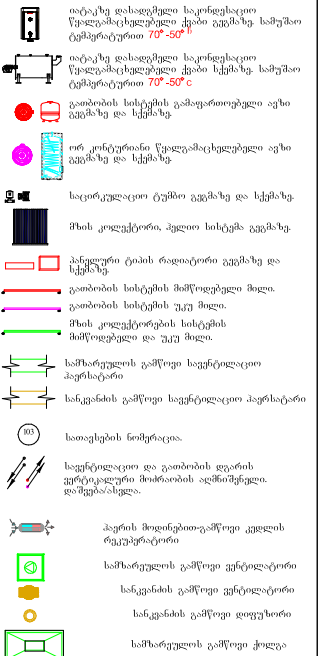 იატაკზე დასადგმელი საკონდესაციო
წყალგამაცხელებელი ქვაბი გეგმაზე. სამუშაო
ტემპერატურით 70°-50°
იატაკზე დასადგმელი საკონდესაციო
წყალგამაცხელებელი ქვაბი სქემაზე. სამუშაო
ტემპერატურით 70°-50°c
გათბობის სისტემის გამაფართოებელი ავზი
გეგმაზე და სქემაზე.
ორ კონტურიანი წყალგამაცხელებელი ავზი
გეგმაზე და სქემაზე.
საცირკულაციო ტუმბო გეგმაზე და სქემაზე.
მზის კოლექტორი, ჰელიო სისტემა გეგმაზე.
პანელური ტიპის რადიატორი გეგმაზე და
სქემაზე.
გათბობის სისტემის მიმწოდებელი მილი.
გათბობის სისტემის უკუ მილი.
მზის კოლექტორების სისტემის
მიმწოდებელი და უკუ მილი.
სამზარეულოს გამწოვი სავენტილაციო
ჰაერსატარი
სანკვანძის გამწოვი სავენტილაციო ჰაერსატარი
103
სათავსების ნომერაცია.
სავენტილაციო და გათბობის დგარის
ვერტიკალური მოძრაობის აღმნიშვნელი.
დაშვება/ასვლა.
ჰაერის მოდინებით-გამწოვი კედლის
რეკუპერატორი
სამზარეულოს გამწოვი ვენტილატორი
სანკვანძის გამწოვი ვენტილატორი
სანკვანძის გამწოვი დიფუზორი
სამზარეულოს გამწოვი ქოლგა